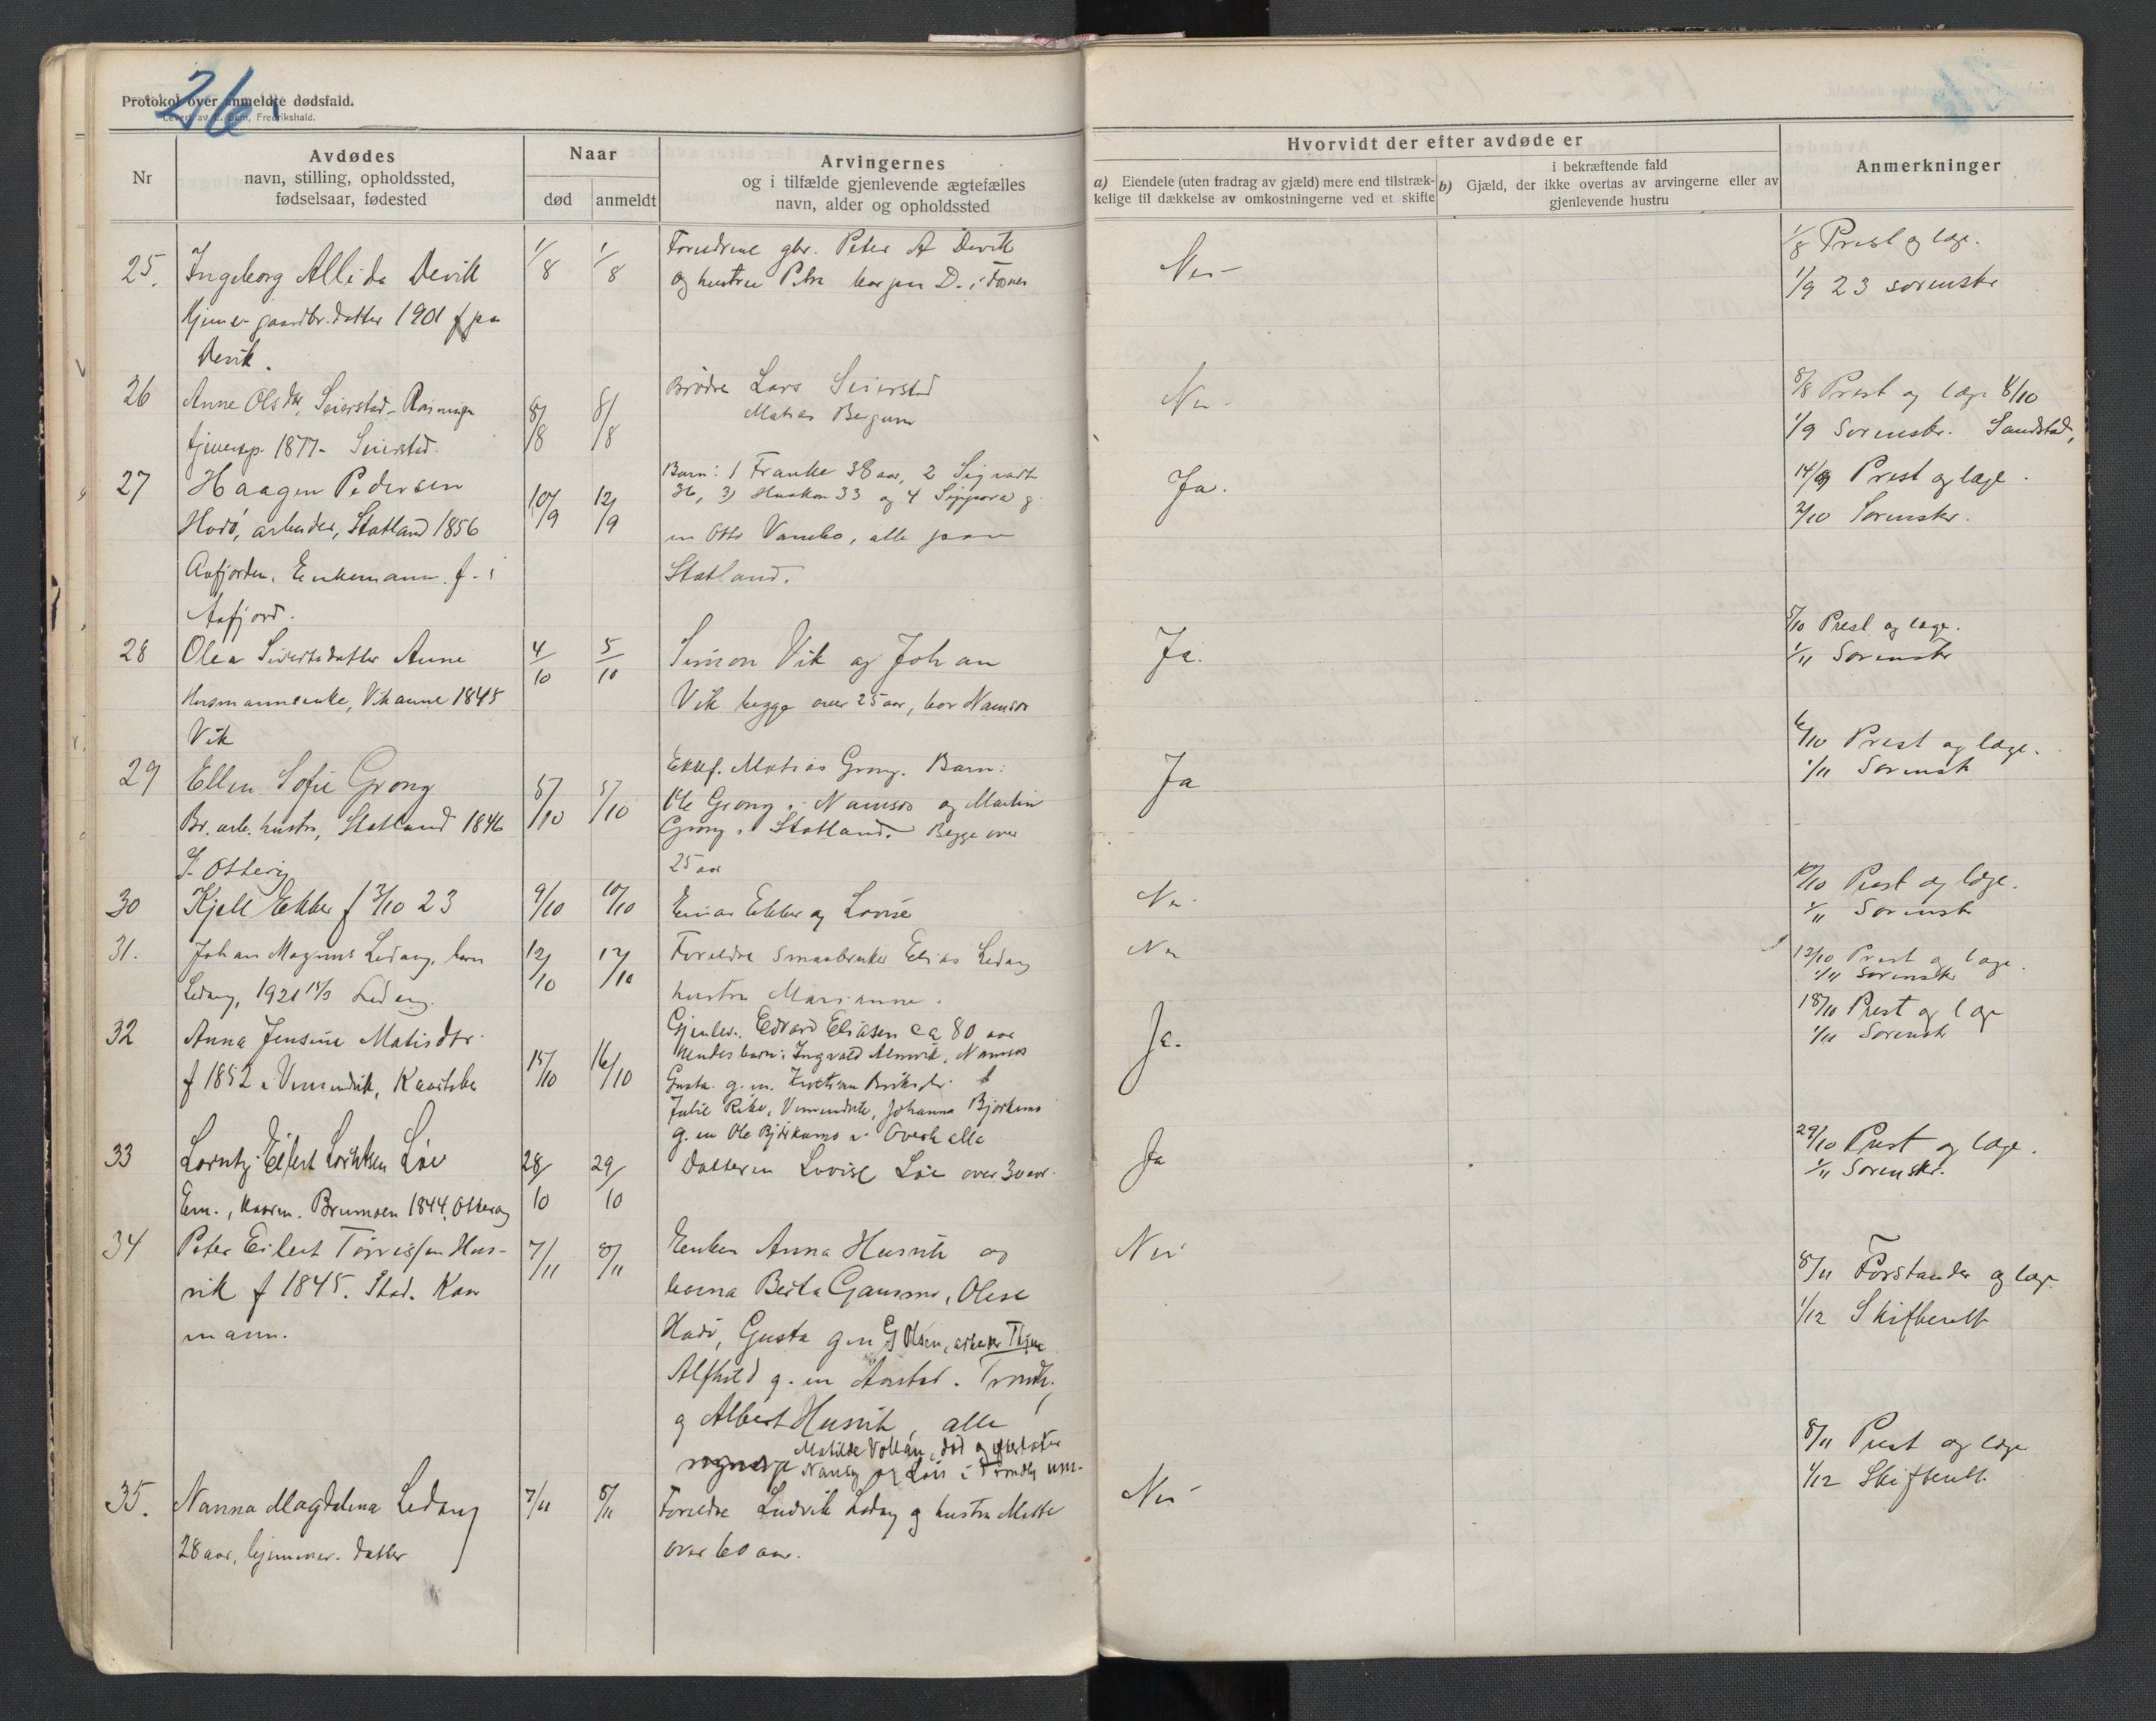 26.
Protokol over anmeldte dødsfald.
Levert av E. Sem, Fredrikshald.
Nr
Avdødes
navn, stilling, opholdssted,
fødselsaar, fødested
Naar
død
anmeldt
Arvingernes
og i tilfælde gjenlevende ægtefælles
navn, alder og opholdssted
Hvorvidt der efter avdøde er
a) Eiendele (uten fradrag av gjæld) mere end tilstræk-
kelige til dækkelse av omkostningerne ved et skifte
i bekræftende fald
b) Gjæld, der ikke overtas av arvingerne eller av
gjenlevende hustru
Anmerkninger
25. Ingeborg Allida Devik 1/8 1/8
Hjemev. gaardbr. datter 1901 f paa
Devik.
Forældrene gbr. Peter A Devik
og hustru Petra bor paa D. i Fosnes
Nei
1/8 Prest og læge.
1/9 23 sorenskr
26 Anne Olsdtr, Seierstad 8/8 8/8
1877 - Seierstad.
Brødre Lars Seierstad
Matias Bergum
Nei
8/8 Prest og læge 8/10
1/9 Sorenskr. Sandstad,
27 Haagen Pedersen 10/9 12/9
Hodø, arbeider, Statland 1856
Aafjorden. Enkemann. f. i
Aafjord.
Barn: 1 Franke 38 aar, 2 Sigvart
36, 3) Haakon 33 og 4 Sippora g.
m Otto Vannebo, alle paa
Statland.
Ja.
14/9 Prest og læge.
2/10 Sorenskr.
28 Olea Sivertsdatter Aune 4/10 5/10
Husmannsenke, Vikaune 1845
Vik
Simon Vik og Johan
Vik begge over 25 aar, bor Namsos
Ja.
5/10 Prest og læge.
1/11 Sorenskr
29 Ellen Sofie Grong 5/10 5/10
Br. arb. hustru, Statland 1846
f. Otterøy
Ektef. Matias Grong. Barn:
Ole Grong i Namsos og Martin
Grong i Statland. Begge over
25 aar
Ja
6/10 Prest og læge.
1/11 Sorensk
30 Kjell Ekker f 3/10 23 9/10 10/10
Einar Ekker og Lovise
Nei
10/10 Prest og læge.
1/11 Sorensk
31. Johan Magnus Ledang, barn 12/10 12/10
Ledang, 1921 Ledang.
Forældre smaabruker Elias Ledang
hustru Marianne.
Nei
13/10 Prest og læge.
1/11 Sorenskr
32 Anna Jensine Matisdtr. 15/10 16/10
f 1852 i Vemundvik,
Gjenlev. Edvard Eliasen ca 80 aar
Hendes barn: Ingvald Almvik, Namsos
Gusta g. m.
Julie Rike, Vemundvik, Johanna Bjørkamo
g. m Ole Bjørkamo i Overhalla
Ja.
18/10 Prest og læge
1/11 Sorensk
33 Lorntz Eilert Lorntsen Løe 28/10 29/10
Em., kaarm. Brumoen 1844, Otterøy
Datteren Lovise Løe over 30 aar.
Ja
29/10 Prest og læge.
1/11 Sorenskr.
34 Peter Eilert Tørrissen Hus- 7/11 8/11
vik f 1845. Stad. Kaar
mann.
Enken Anna Husvik og
barna Berta Gansmo, Olise
Hodø, Gusta g m G Olsen, arbeider Thjem
Alfhild g. m Aarstad. Trondh.,
og Albert Husvik, alle
myndige Matilde Vollan, død og efterlater
Nancy og Lois i Trondhj um.
Nei
8/11 Forstander og læge
1/12 Skifterett
35. Nanna Magdalena Ledang 7/11 8/11
28 aar, hjemmev. datter
Forældre Ludvik Ledang g hustru Mette
over 60 aar.
Nei
8/11 Prest og læge
1/12 Skifterett.